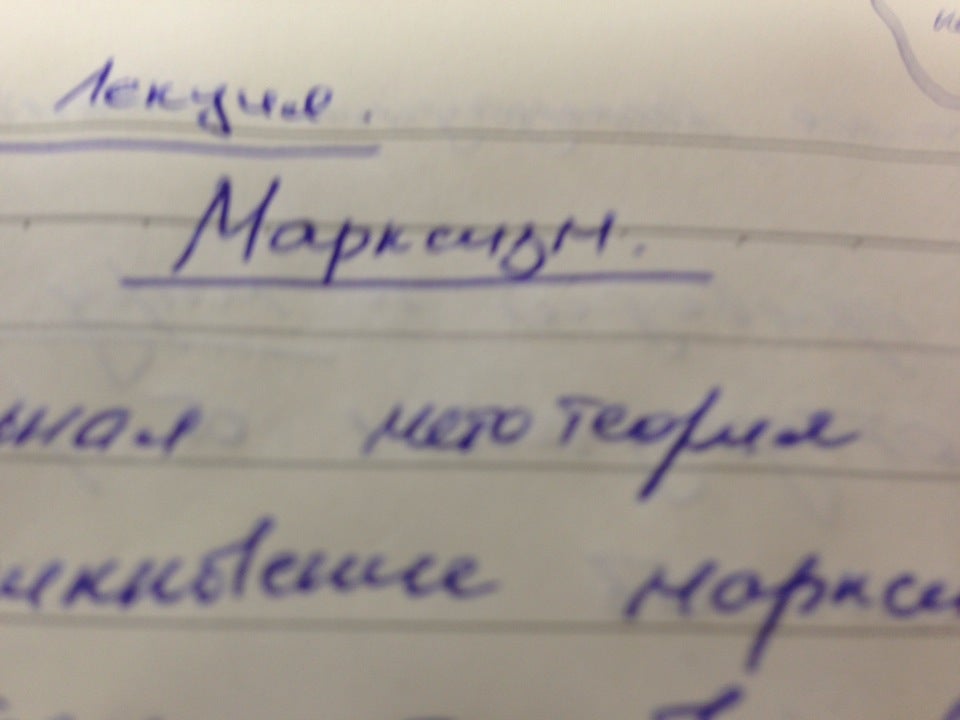 Лекция.
Марксизм.
ная метотеория
никновение маркси